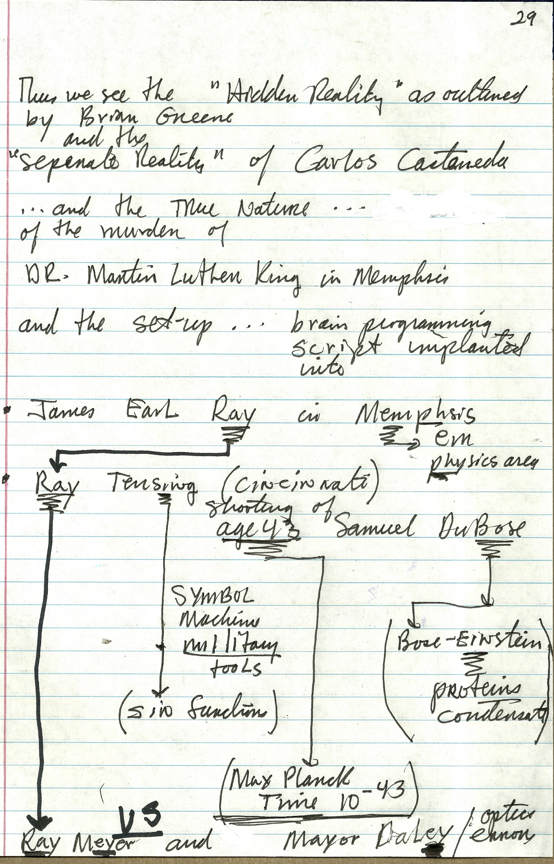 29
Thus we see the "Hidden Reality" as outlined
by Brian Greene
and the
"seperate Reality" of Carlos Castaneda
... and the True Nature ...
of the murder of
DR. Martin Luther King in Memphsis
and the set-up ... brain programming
script implanted
into
• James Earl Ray in Memphsis
em
physics area
• Ray Tensing (cincinnati)
shooting of
age 43 Samuel DuBose
SYMBOL
Machine
military
tools
(sin function)
(Bose-Einstein
proteins
condensate)
(Max Planck
Time 10-43)
VS
Ray Meyer and Mayor Daley / optic